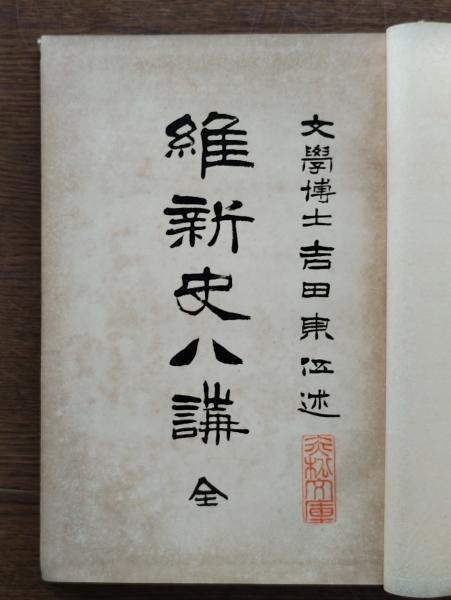 文學博士吉田東伍述
維新史八講 全